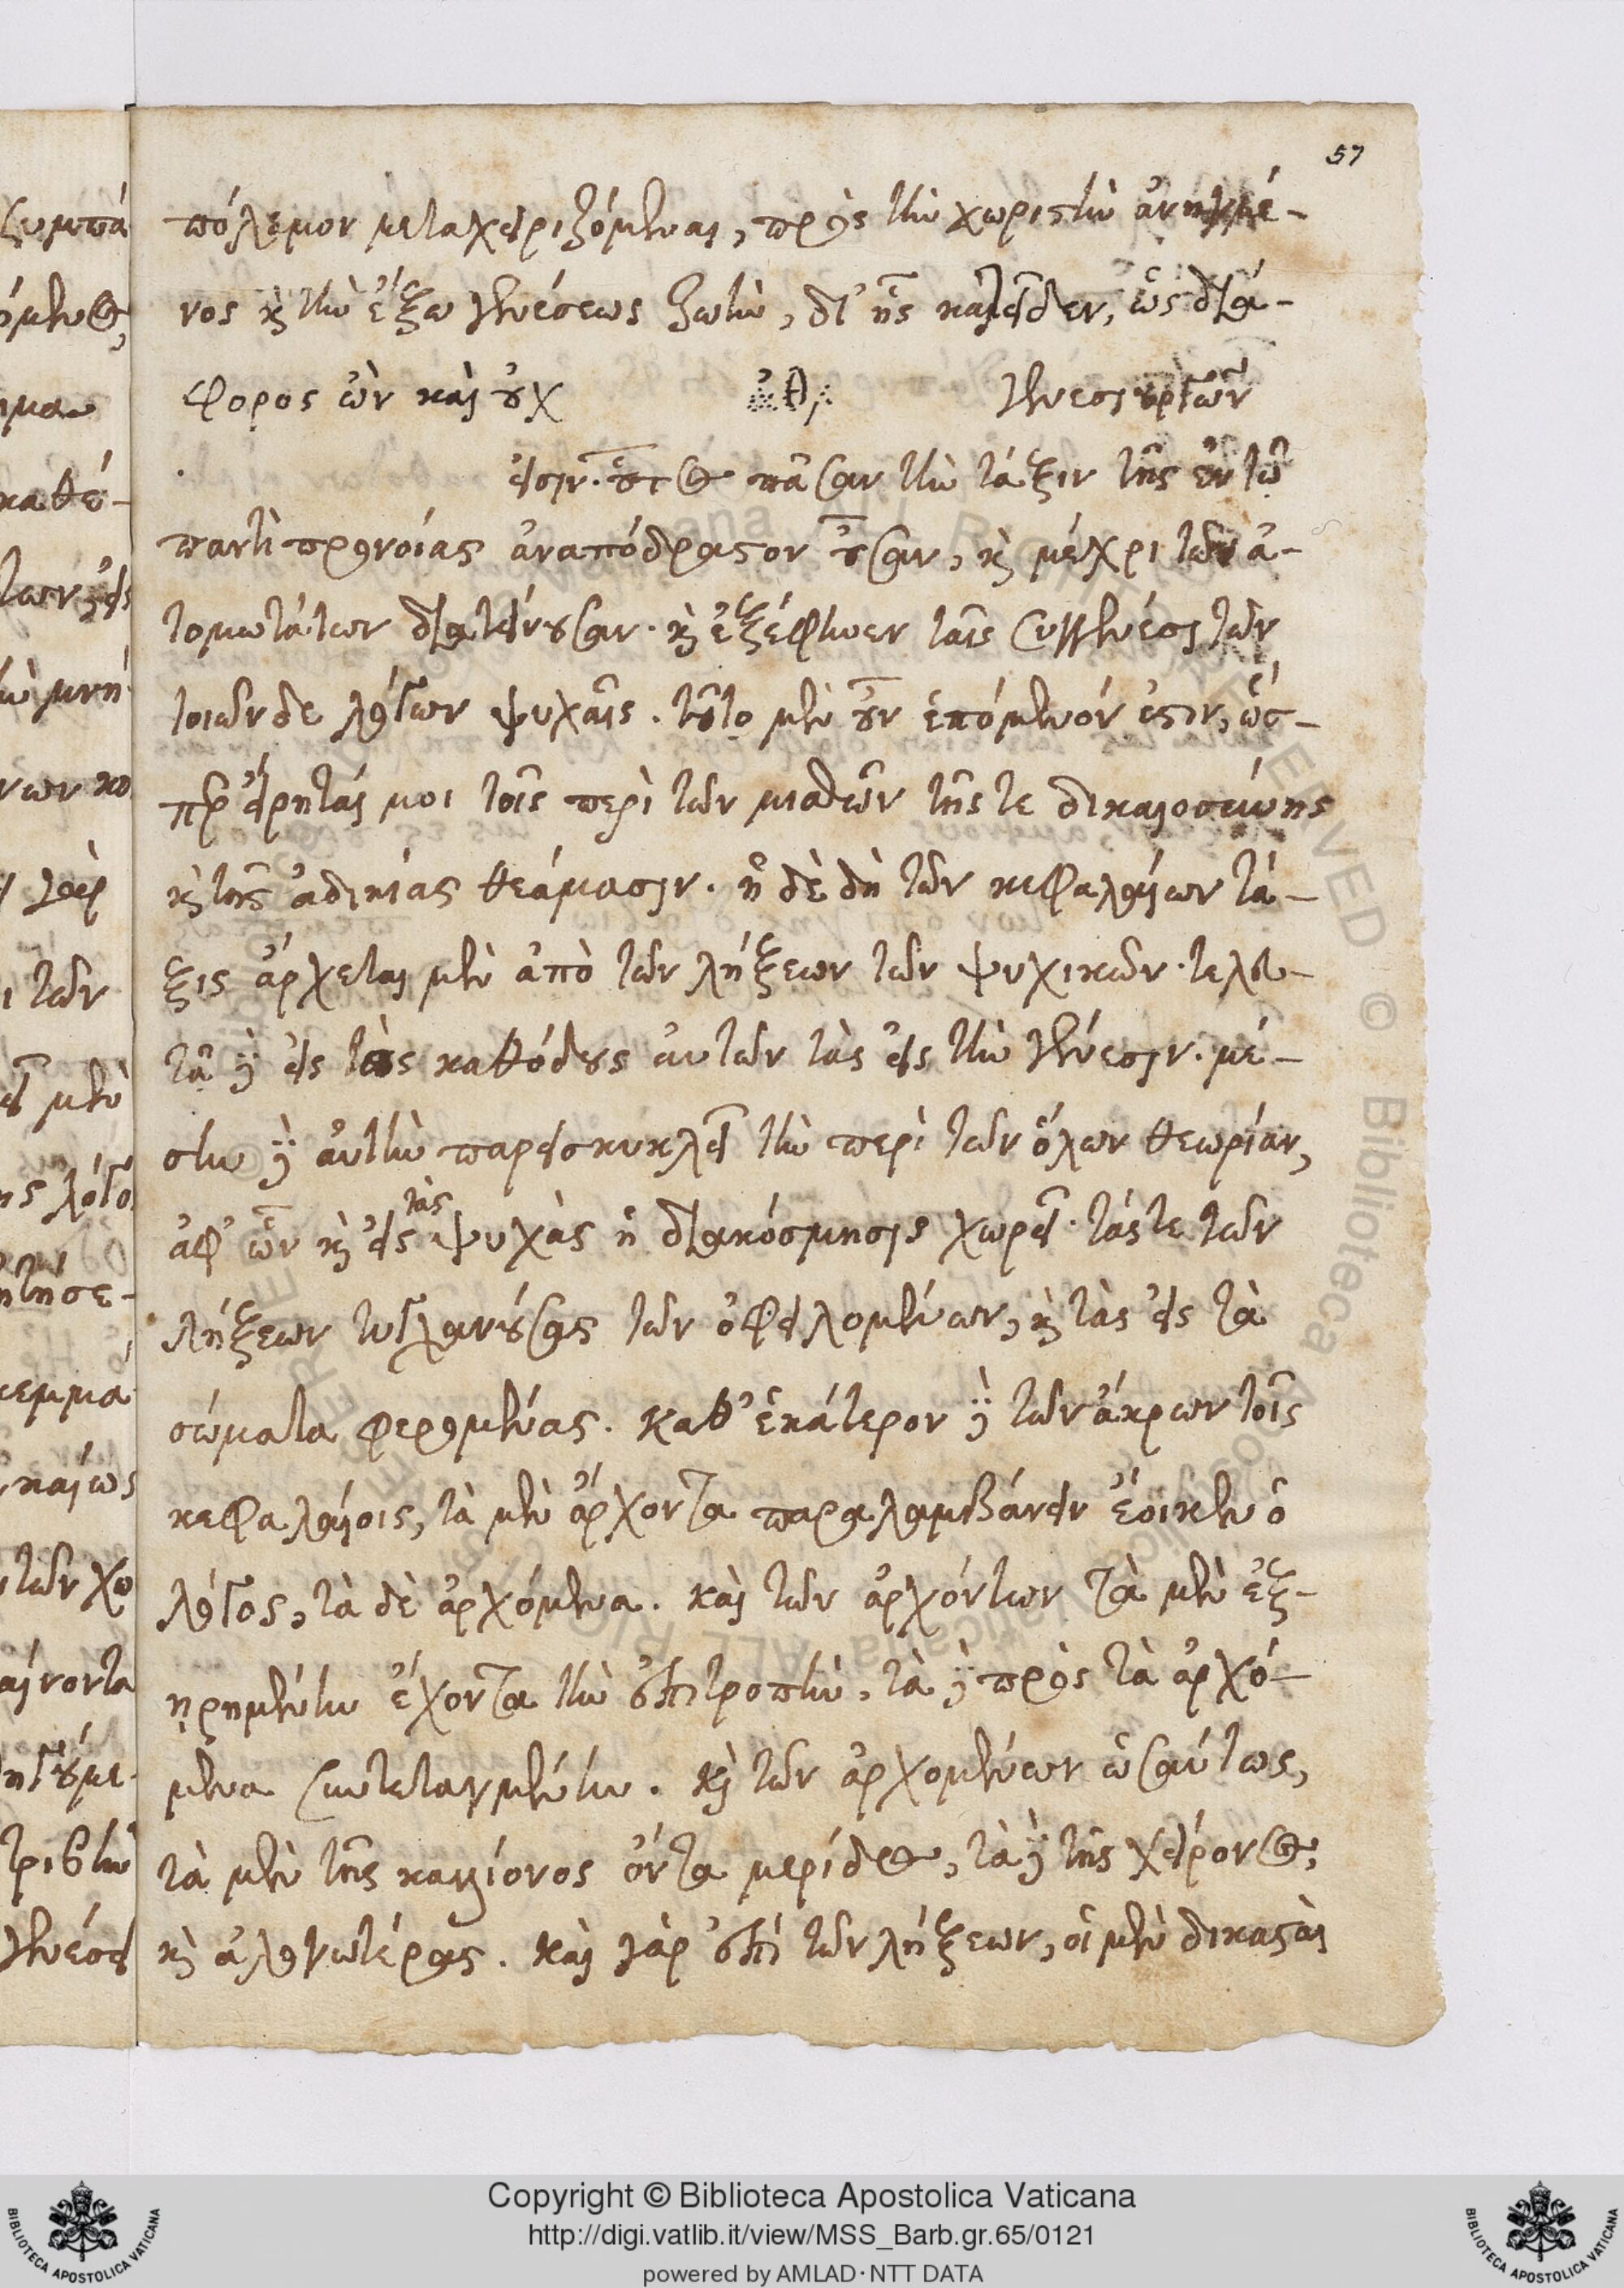 57
πόλεμον μεταχειριζόμεναι, πρὸς τὴν χωριστὴν ἀνηγμέ-
νος κ̀ τὴν ἔξω γενέσεως ζωὴν, δι' ἧς κατεῖδεν, ὡς διά-
φορος ὢν καὶ οὐχ γενεσιουργῶν
εἰσιν. οὗτος πᾶσαν τὴν τάξιν τῆς ἐν τῷ
παντὶ προνοίας ἀναπόδραστον οὖσαν, κ̀ μέχρι τῶν ἀ-
τομωτάτων διατείνουσαν. κ̀ ἐξέφηνεν ταῖς συγγενέσι τῶν
τοιῶνδε λόγων ψυχαῖς. τοῦτο μὲν οὖν ἑπόμενόν ἐστιν, ὥσ-
περ εἴρηταί μοι τοῖς περὶ τῶν μισθῶν τῆς τε δικαιοσύνης
κ̀ τῆς ἀδικίας θεάμασιν. ἡ δὲ δὴ τῶν κεφαλαίων τά-
ξις ἄρχεται μὲν ἀπὸ τῶν λήξεων τῶν ψυχικῶν. τελευ-
τᾷ δὲ εἰς τὰς καθόδους αὐτῶν τὰς εἰς τὴν γένεσιν. μέ-
σην δὲ αὐτὴν παρεισκυκλεῖ τὴν περὶ τῶν ὅλων θεωρίαν,
ἀφ' ὧν κ̀ εἰς τὰς ψυχὰς ἡ διακόσμησις χωρεῖ. τάς τε τῶν
λήξεων τυγχανούσας τῶν ὀφειλομένων, κ̀ τὰς εἰς τὰ
σώματα φερομένας. καθ' ἑκάτερον δὲ τῶν ἄκρων τοῖς
κεφαλαίοις, τὰ μὲν ἄρχοντα παραλαμβάνειν ἔοικεν ὁ
λόγος, τὰ δὲ ἀρχόμενα. καὶ τῶν ἀρχόντων τὰ μὲν ἐξ-
ῃρημένην ἔχοντα τὴν ἐπιτροπὴν, τὰ δὲ πρὸς τὰ ἀρχό-
μενα συντεταγμένην. κ̀ τῶν ἀρχομένων ὡσαύτως,
τὰ μὲν τῆς καλλίονος ὄντα μερίδος, τὰ δὲ τῆς χείρονος,
κ̀ ἀλογωτέρας. καὶ γὰρ ἐπὶ τῶν λήξεων, οἱ μὲν δικασταὶ
Copyright © Biblioteca Apostolica Vaticana
http://digi.vatlib.it/view/MSS_Barb.gr.65/0121
powered by AMLAD·NTT DATA